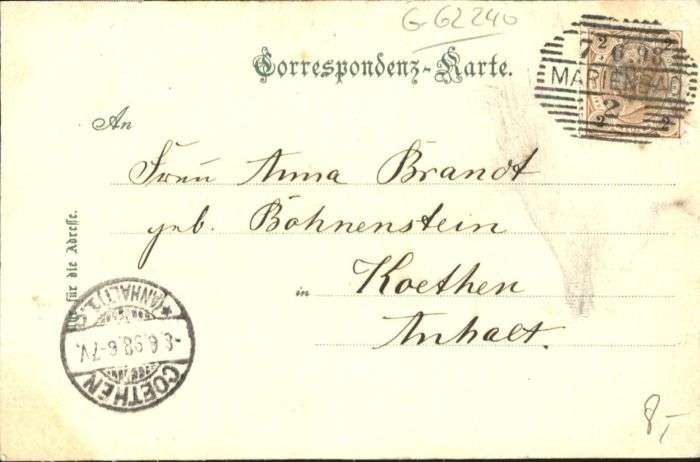 G 62240
Correspondenz-Karte.
2 2
7 6 98
MARIENBAD
2
2 2
An
Frau Anna Brandt
geb. Böhnenstein
in Koethen
Anhalt.
für die Adresse.
(ANHALT) 1.
-8.6.98.6-7V.
COETHEN
8,-